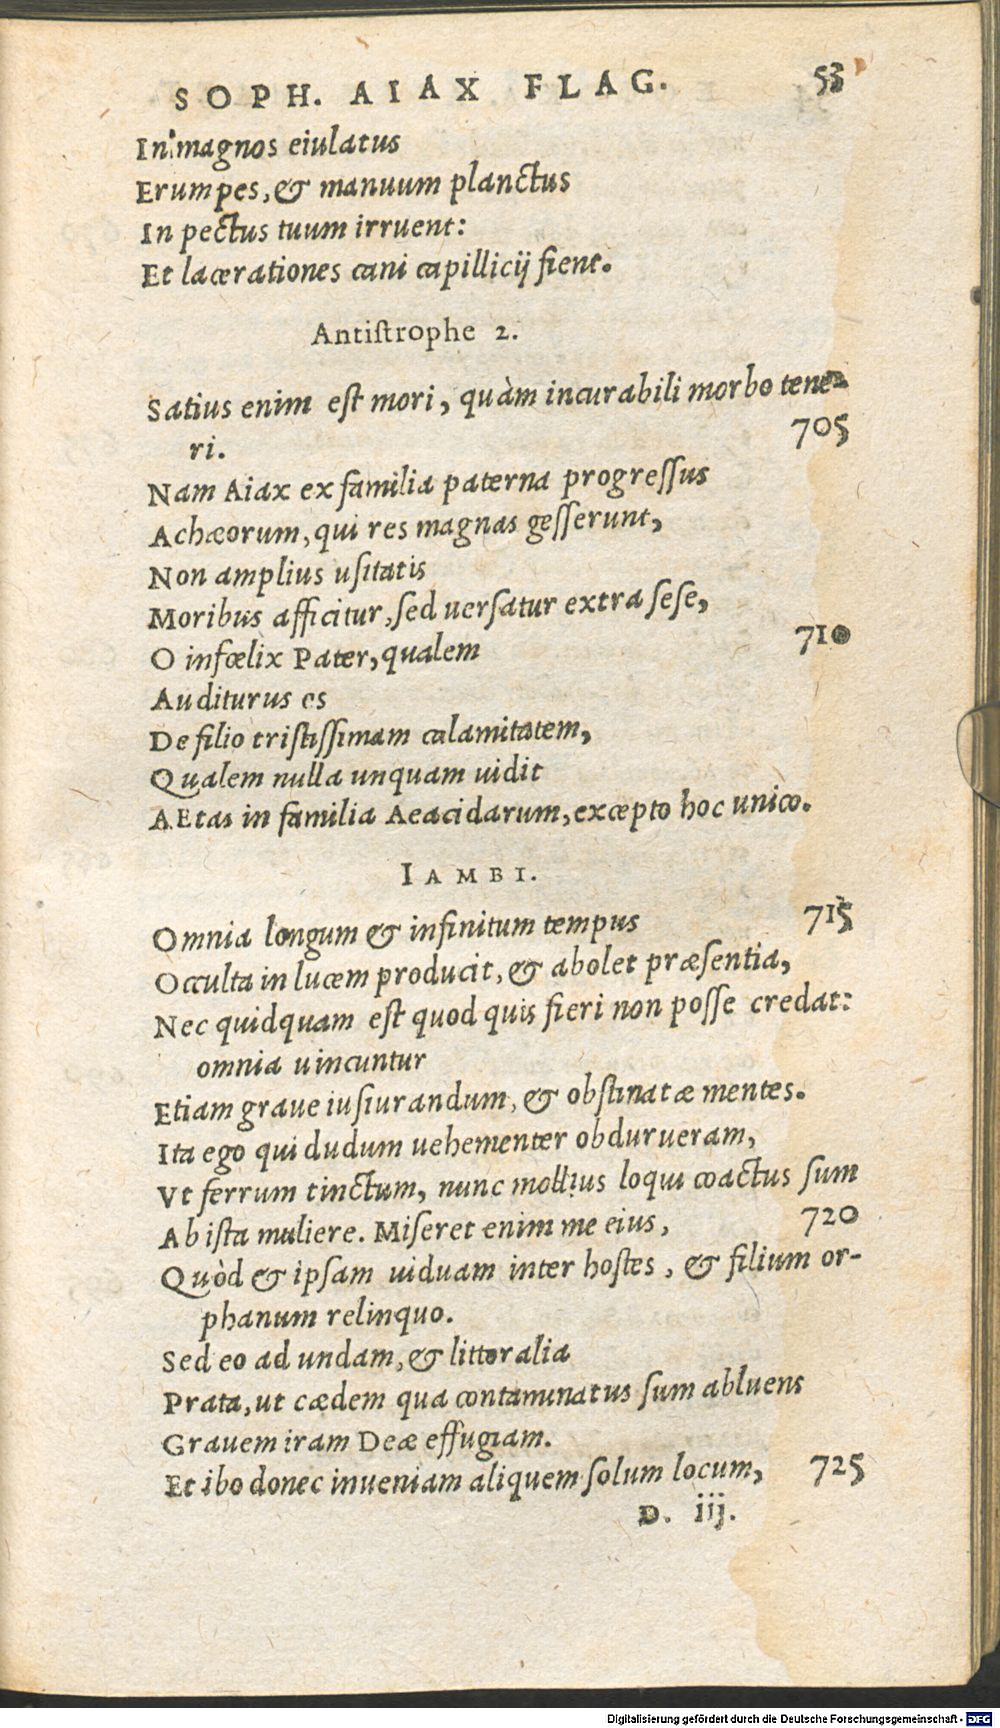 SOPH. AIAX FLAG. 53
In magnos eiulatus
Erumpes, & manuum planctus
In pectus tuum irruent:
Et lacerationes cani capillicij fient.
Antiſtrophe 2.
Satius enim eſt mori, quàm incurabili morbo tene-
ri. 705
Nam Aiax ex familia paterna progreſſus
Achæorum, qui res magnas geſſerunt,
Non amplius uſitatis
Moribus afficitur, ſed uerſatur extra ſeſe,
O infœlix Pater, qualem 710
Auditurus es
De filio triſtiſſimam calamitatem,
Qualem nulla unquam uidit
AEtas in familia Aeacidarum, excepto hoc unico.
IAMBI.
Omnia longum & infinitum tempus 715
Occulta in lucem producit, & abolet præſentia,
Nec quidquam eſt quod quis fieri non poſſe credat:
omnia uincuntur
Etiam graue iuſiurandum, & obſtinatæ mentes.
Ita ego qui dudum uehementer obdurueram,
Vt ferrum tinctum, nunc mollius loqui coactus ſum
Ab iſta muliere. Miſeret enim me eius, 720
Quòd & ipſam uiduam inter hoſtes, & filium or-
phanum relinquo.
Sed eo ad undam, & littoralia
Prata, ut cædem qua contaminatus ſum abluens
Grauem iram Deæ effugiam.
Et ibo donec inueniam aliquem ſolum locum, 725
D. iij.
Digitalisierung gefördert durch die Deutsche Forschungsgemeinschaft - DFG